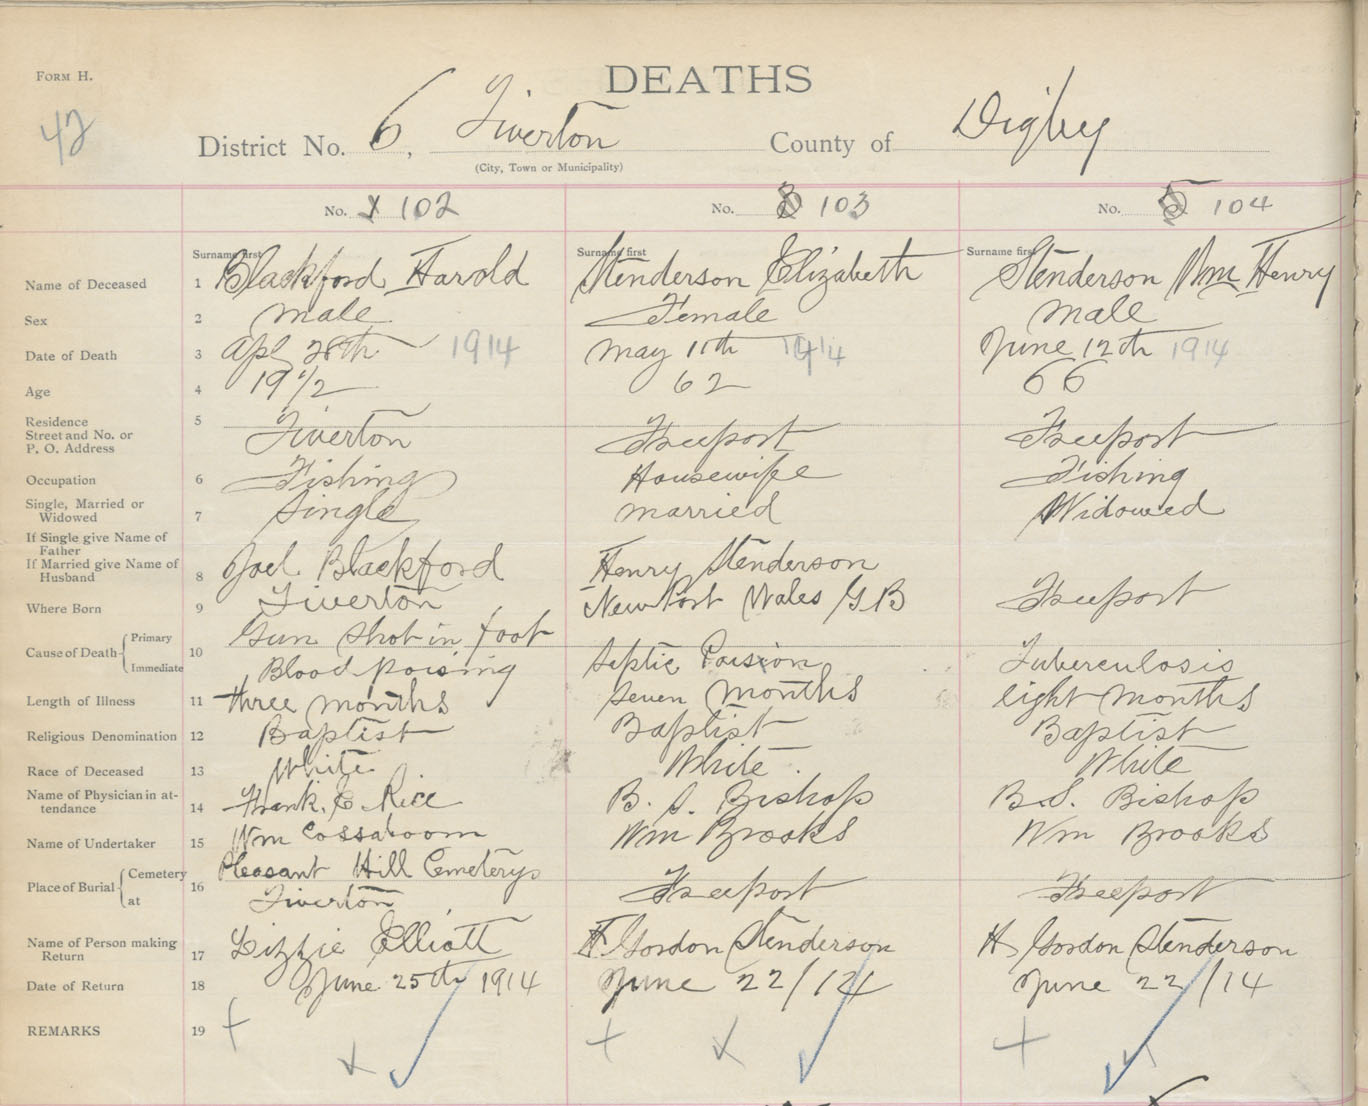 FORM H.
DEATHS
42
District No. 6, Tiverton County of Digby
(City, Town or Municipality)
No. 1 102 No. 3 103 No. 5 104
Surname first Surname first Surname first
Name of Deceased 1 Blackford Harold Henderson Elizabeth Henderson Wm Henry
Sex 2 male Female male
Date of Death 3 Apl 28th 1914 may 11th 1914 June 12th 1914
Age 4 19 1/2 62 66
Residence 5
Street and No. or
P. O. Address Tiverton Freeport Freeport
Occupation 6 Fishing Housewife Fishing
Single, Married or
Widowed 7 Single married Widowed
If Single give Name of
Father
If Married give Name of
Husband 8 Joel Blackford Henry Henderson
Where Born 9 Tiverton New Port Wales G B Freeport
Cause of Death Primary 10 Gun Shot in foot
Immediate Blood poising Septic Poision Tuberculosis
Length of Illness 11 three months Seven months eight months
Religious Denomination 12 Baptist Baptist Baptist
Race of Deceased 13 White White White
Name of Physician in at-
tendance 14 Frank. E. Rice B. S. Bishop B. S. Bishop
Name of Undertaker 15 Wm Cossaboom Wm Brooks Wm Brooks
Place of Burial Cemetery 16 Pleasant Hill Cemeterys
at Tiverton Freeport Freeport
Name of Person making
Return 17 Lizzie Elliott H Gordon Henderson H Gordon Henderson
Date of Return 18 June 25th 1914 June 22/14 June 22/14
REMARKS 19